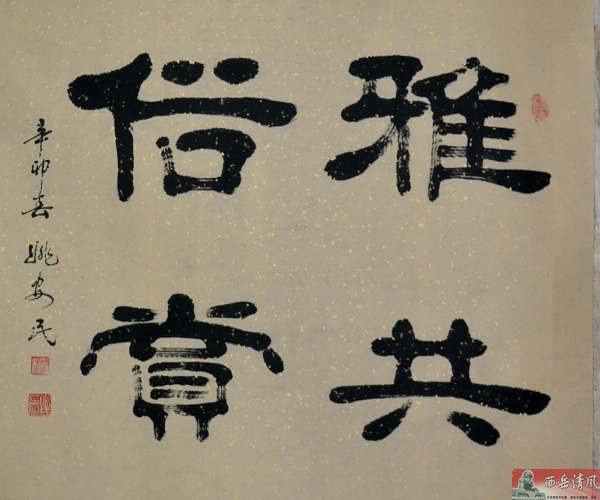 雅俗
共賞
辛卯春 姚安民
西岳清风